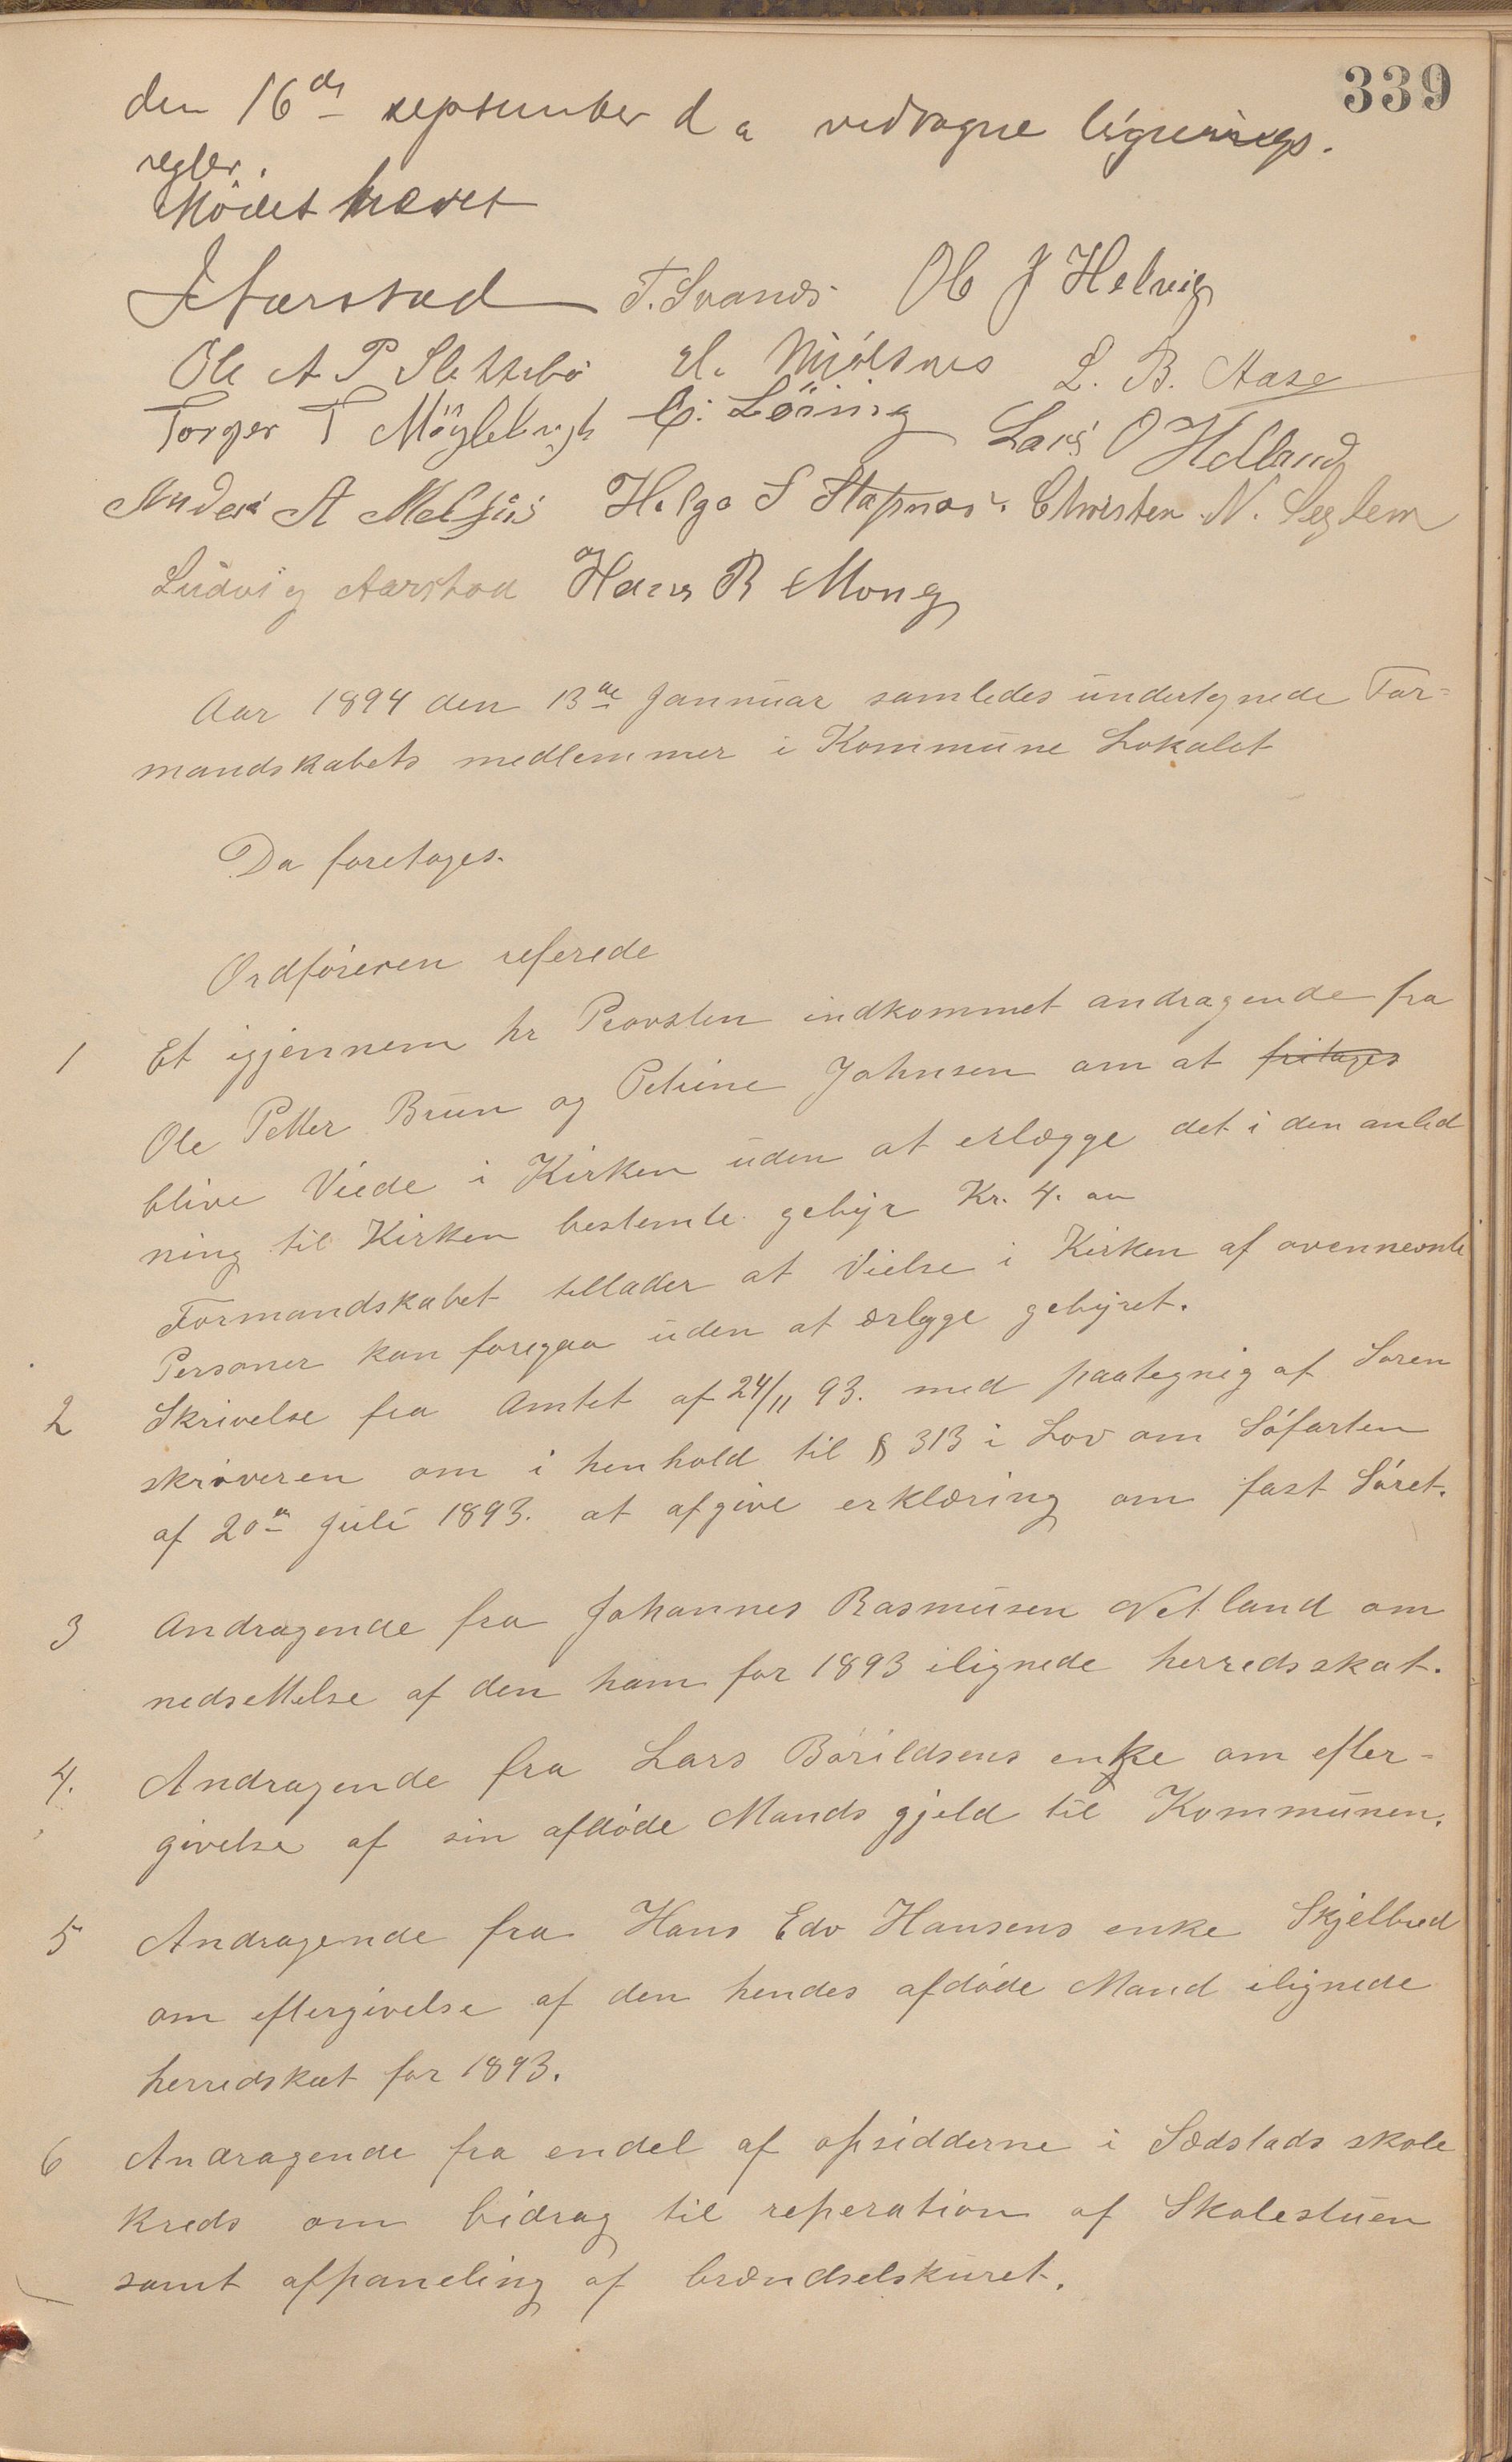 339
den 16de september d a vedtagne lignings-
regler.
Mödet hævet
J Aarstad T. Svanes Ole J Helvig
Ole A P Slettebö M. Mjölsnes L. B. Aase
Torger T Möglebugh C. Löining Lars O Helland
Anders A Melhus Helge S Stapnes. Christen N. Seglem
Ludvig Aarstad og Hans R Mong
Aar 1894 den 13de Januuar samledes undertegnede For-
mandskabets medlemmer i Kommune Lokalet
Da foretoges.
Ordföreren referede
1 Et igjennem hr Provsten indkommet andragende fra
Ole Petter Bruun og Petrine Johnsen om at fritages
blive Viede i Kirken uden at erlægge det i den anled
ning til Kirken bestemte gebyr Kr. 4. an
Formandskabet tillader at Vielse i Kirken af ovennevnte
Personer kan foregaa uden at ærlgge gebyret.
2 Skrivelse fra Amtet af 24/11 93. med paategnig af Soren
skriveren om i henhold til § 313 i Lov om Söfarten
af 20de Juli 1893. at afgive erklæring om fast Söret.
3 Andragende fra Johannes Rasmusen Netland om
nedsettelse af den ham for 1893 ilignede herredsskat.
4. Andragende fra Lars Bärildsens enke om efter-
givelse af sin afdöde Mands gjeld til Kommunen.
5 Andragende fra Hans Edv Hansens enke Skjelbred
om eftergivelse af den hendes afdöde Mand ilignede
herredskat for 1893.
6 Andragende fra endel af opsidderne i Sædstads skole
kreds om bidrag til reperation af Skolestuen
samt afpaneling af brændselskuret.